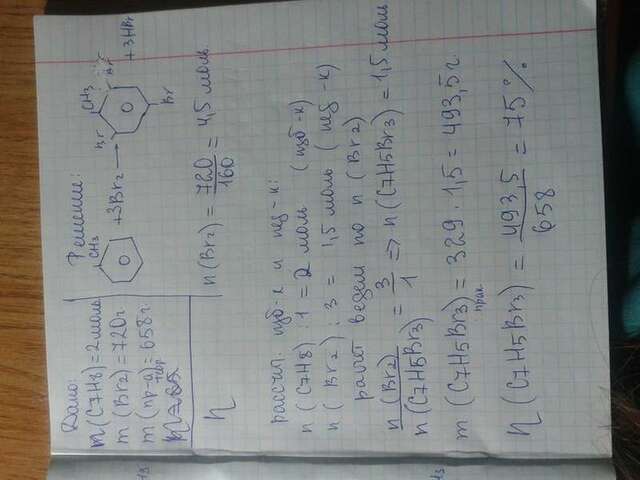 Дано:
m(C7H8)=2моль
m(Br2)=720г
m(пр-а)=658г.
теор
η
Решение:
CH3
+3Br2 →
CH3
Br
Br
Br
+3HBr
n(Br2) = 720/160 = 4,5 моль
рассчит. изб-к и нед-к:
n(C7H8) : 1 = 2 моль (изб-к)
n(Br2) : 3 = 1,5 моль (нед-к)
расчёт ведем по n(Br2)
n(Br2)/n(C7H5Br3) = 3/1 => n(C7H5Br3) = 1,5 моль
m(C7H5Br3) = 329 · 1,5 = 493,5 г.
прак.
η(C7H5Br3) = 493,5/658 = 75%